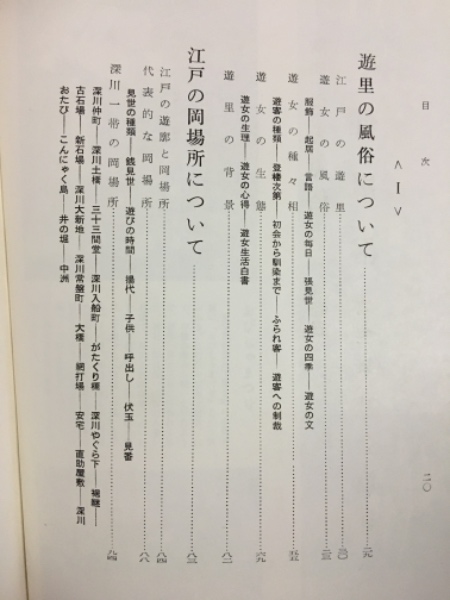 目次
二〇
＜Ⅰ＞
遊里の風俗について……元
江戸の遊里……
遊女の風俗……
服飾――起居――言語――遊女の毎日――張見世――遊女の四季――遊女の文
遊女の種々相……
遊客の種類――登楼次第――初会から馴染まで――ふられ客――遊客への制裁
遊女の生態……六九
遊女の生理――遊女の心得――遊女生活白書
遊里の背景……八二
江戸の岡場所について……八三
江戸の遊廓と岡場所……八四
代表的な岡場所……八八
見世の種類――銭見世――遊びの時間――揚代――子供――呼出し――伏玉――見番
深川一帯の岡場所……九四
深川仲町――深川土橋――三十三間堂――深川入船町――がたくり橋――深川やぐら下――裾継――
古石場――新石場――深川大新地――深川常盤町――大橋――網打場――安宅――直助屋敷――深川
おたび――こんにゃく島――井の堀――中洲